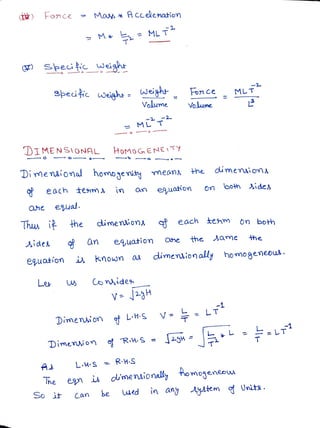 (iv) Force = Mass * Acceleration
= M * L/T² = MLT⁻²
(v) Specific weight
Specific weight = Weight/Volume = Force/Volume = MLT⁻²/L³
= ML⁻²T⁻²
DIMENSIONAL HOMOGENEITY
Dimensional homogenity means the dimensions
of each terms in an equation on both sides
are equal.
Thus if the dimensions of each term on both
sides of an equation are the same the
equation is known as dimensionally homogeneous.
Let us Consider
V = √2gH
Dimension of L.H.S V = L/T = LT⁻¹
Dimension of R.H.S = √2gH = √L/T² * L = L/T = LT⁻¹
As L.H.S = R.H.S
The eqn is dimensionally homogeneous
So it can be used in any system of Units.